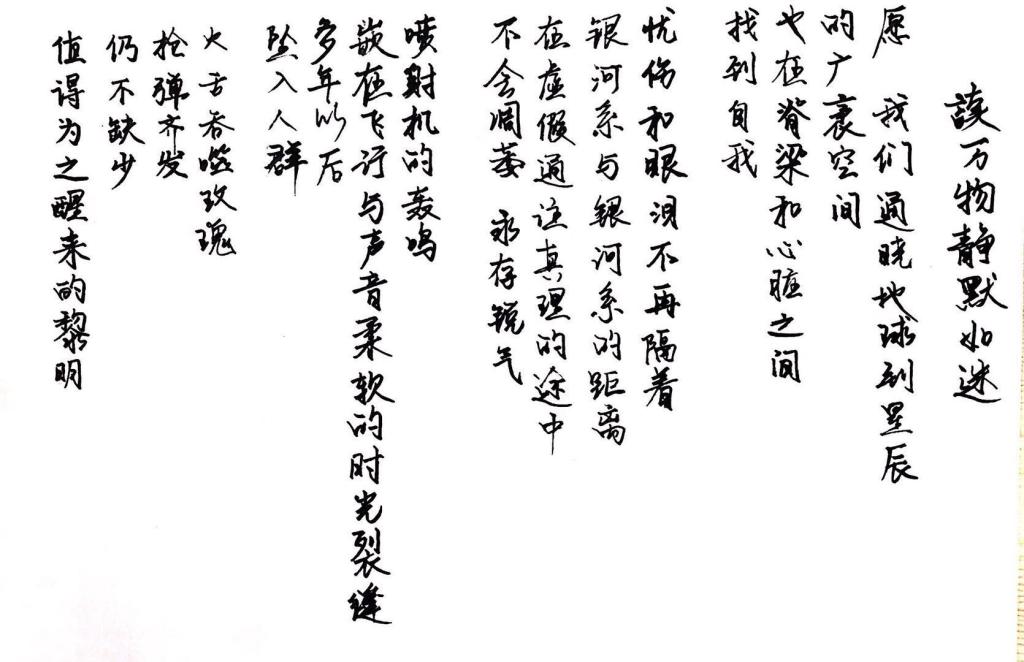 读万物静默如迷
愿 我们通晓地球到星辰
的广袤空间
也在脊梁和心脏之间
找到自我
忧伤和眼泪不再隔着
银河系与银河系的距离
在虚假通往真理的途中
不会凋萎 永存锐气
喷射机的轰鸣
嵌在飞行与声音柔软的时光裂缝
多年以后
坠入人群
火舌吞噬玫瑰
枪弹齐发
仍不缺少
值得为之醒来的黎明